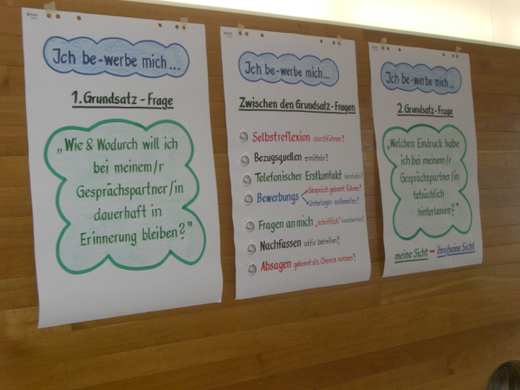 Ich be-werbe mich...
1. Grundsatz - Frage
„Wie & Wodurch will ich
bei meinem/r
Gesprächspartner/in
dauerhaft in
Erinnerung bleiben?"
Ich be-werbe mich...
Zwischen den Grundsatz-Fragen
Selbstreflexion durchführen!
Bezugsquellen ermitteln!
Telefonischer Erstkontakt
Bewerbungs
Gespräch gekonnt führen!
Unterlagen aufbereiten!
Fragen an mich „schriftlich" beantworten!
Nachfassen aktiv betreiben!
Absagen gekonnt als Chance nutzen!
Ich be-werbe mich...
2. Grundsatz-Frage
„Welchen Eindruck habe
ich bei meinem/r
Gesprächspartner/in
tatsächlich
hinterlassen?"
meine Sicht ihre/seine Sicht